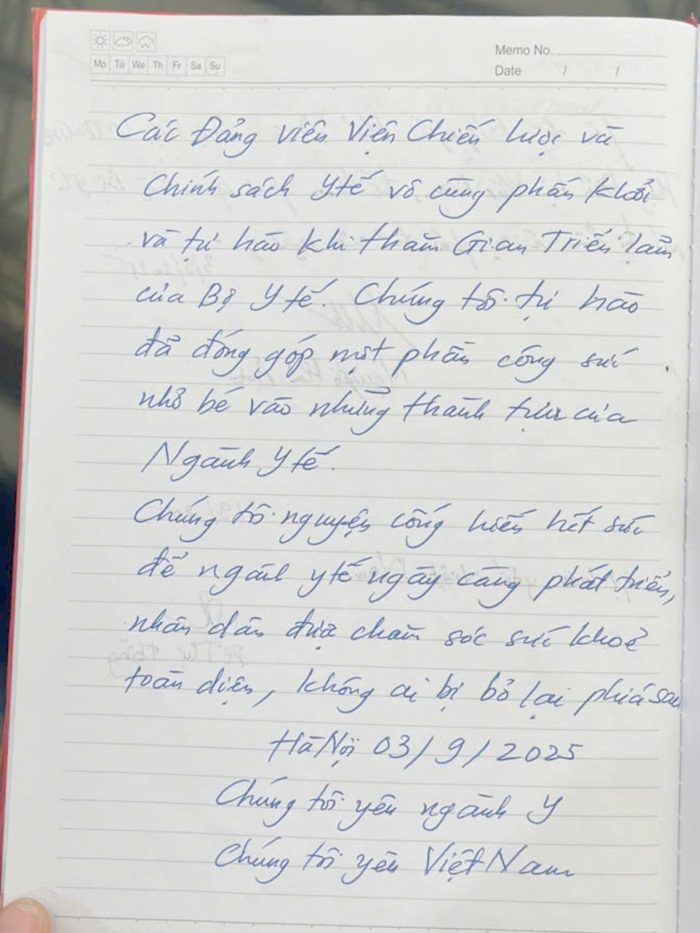 Memo No.
Mo Tu We Th Fr Sa Su
Date / /
Các Đảng viên Viện Chiến lược và
Chính sách Y tế vô cùng phấn khởi
và tự hào khi thăm Gian Triển lãm
của Bộ Y tế. Chúng tôi tự hào
đã đóng góp một phần công sức
nhỏ bé vào những thành tựu của
Ngành Y tế.
Chúng tôi nguyện cống hiến hết sức
để ngành y tế ngày càng phát triển,
nhân dân được chăm sóc sức khoẻ
toàn diện, không ai bị bỏ lại phía sau
Hà Nội 03/9/2025
Chúng tôi yêu ngành Y
Chúng tôi yêu Việt Nam